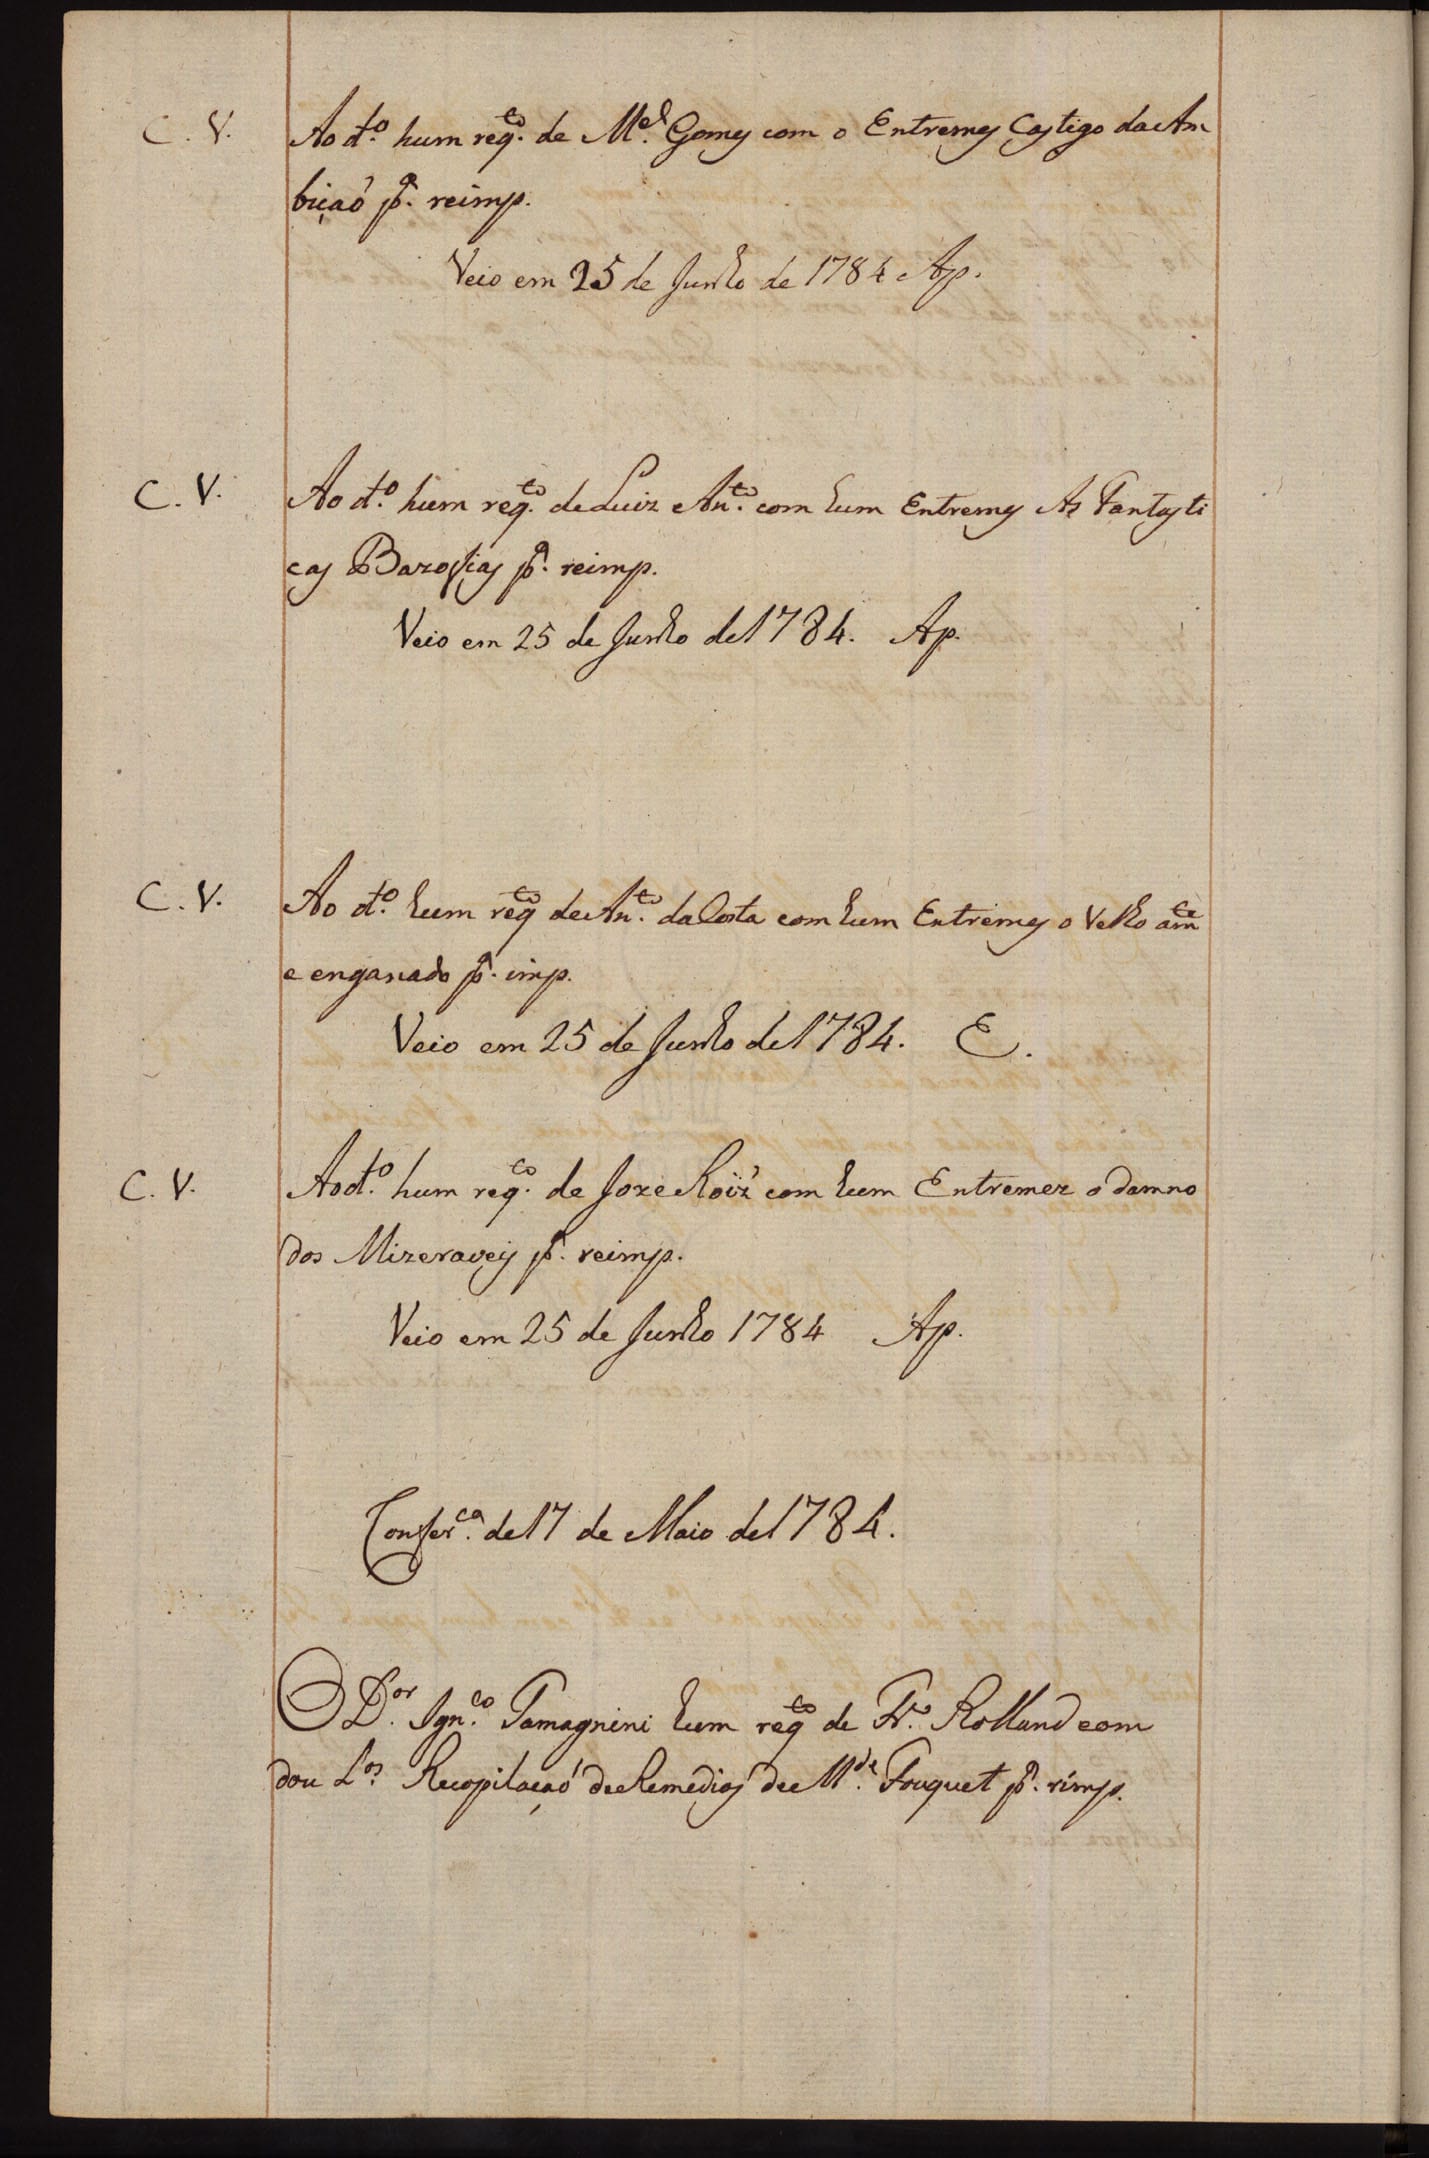 C. V. Ao d.º hum req.to de M.el Gomes com o Entremes Castigo da Am
biçaõ p.ª reimp.
Veio em 25 de Junho de 1784 Ap.
C. V. Ao d.º hum req.to de Luiz An.to com hum Entremes As Fantasti
cas Bazofias p.ª reimp.
Veio em 25 de Junho de 1784. Ap.
C. V. Ao d.º hum req.to de An.to da Costa com hum Entremes o Velho am.te
e enganado p.ª imp.
Veio em 25 de Junho de 1784. E.
C. V. Ao d.º hum req.to de Joze Roiz' com hum Entremez o damno
dos Mizeraveis p.ª reimp.
Veio em 25 de Junho 1784 Ap.
Confer.ca de 17 de Maio de 1784.
O D.or Ign.co Tamagnini hum req.to de Fr.co Rolland com
dou L.os Recopilaçaõ de Remedios de M.de Fouquet p.ª rimp.